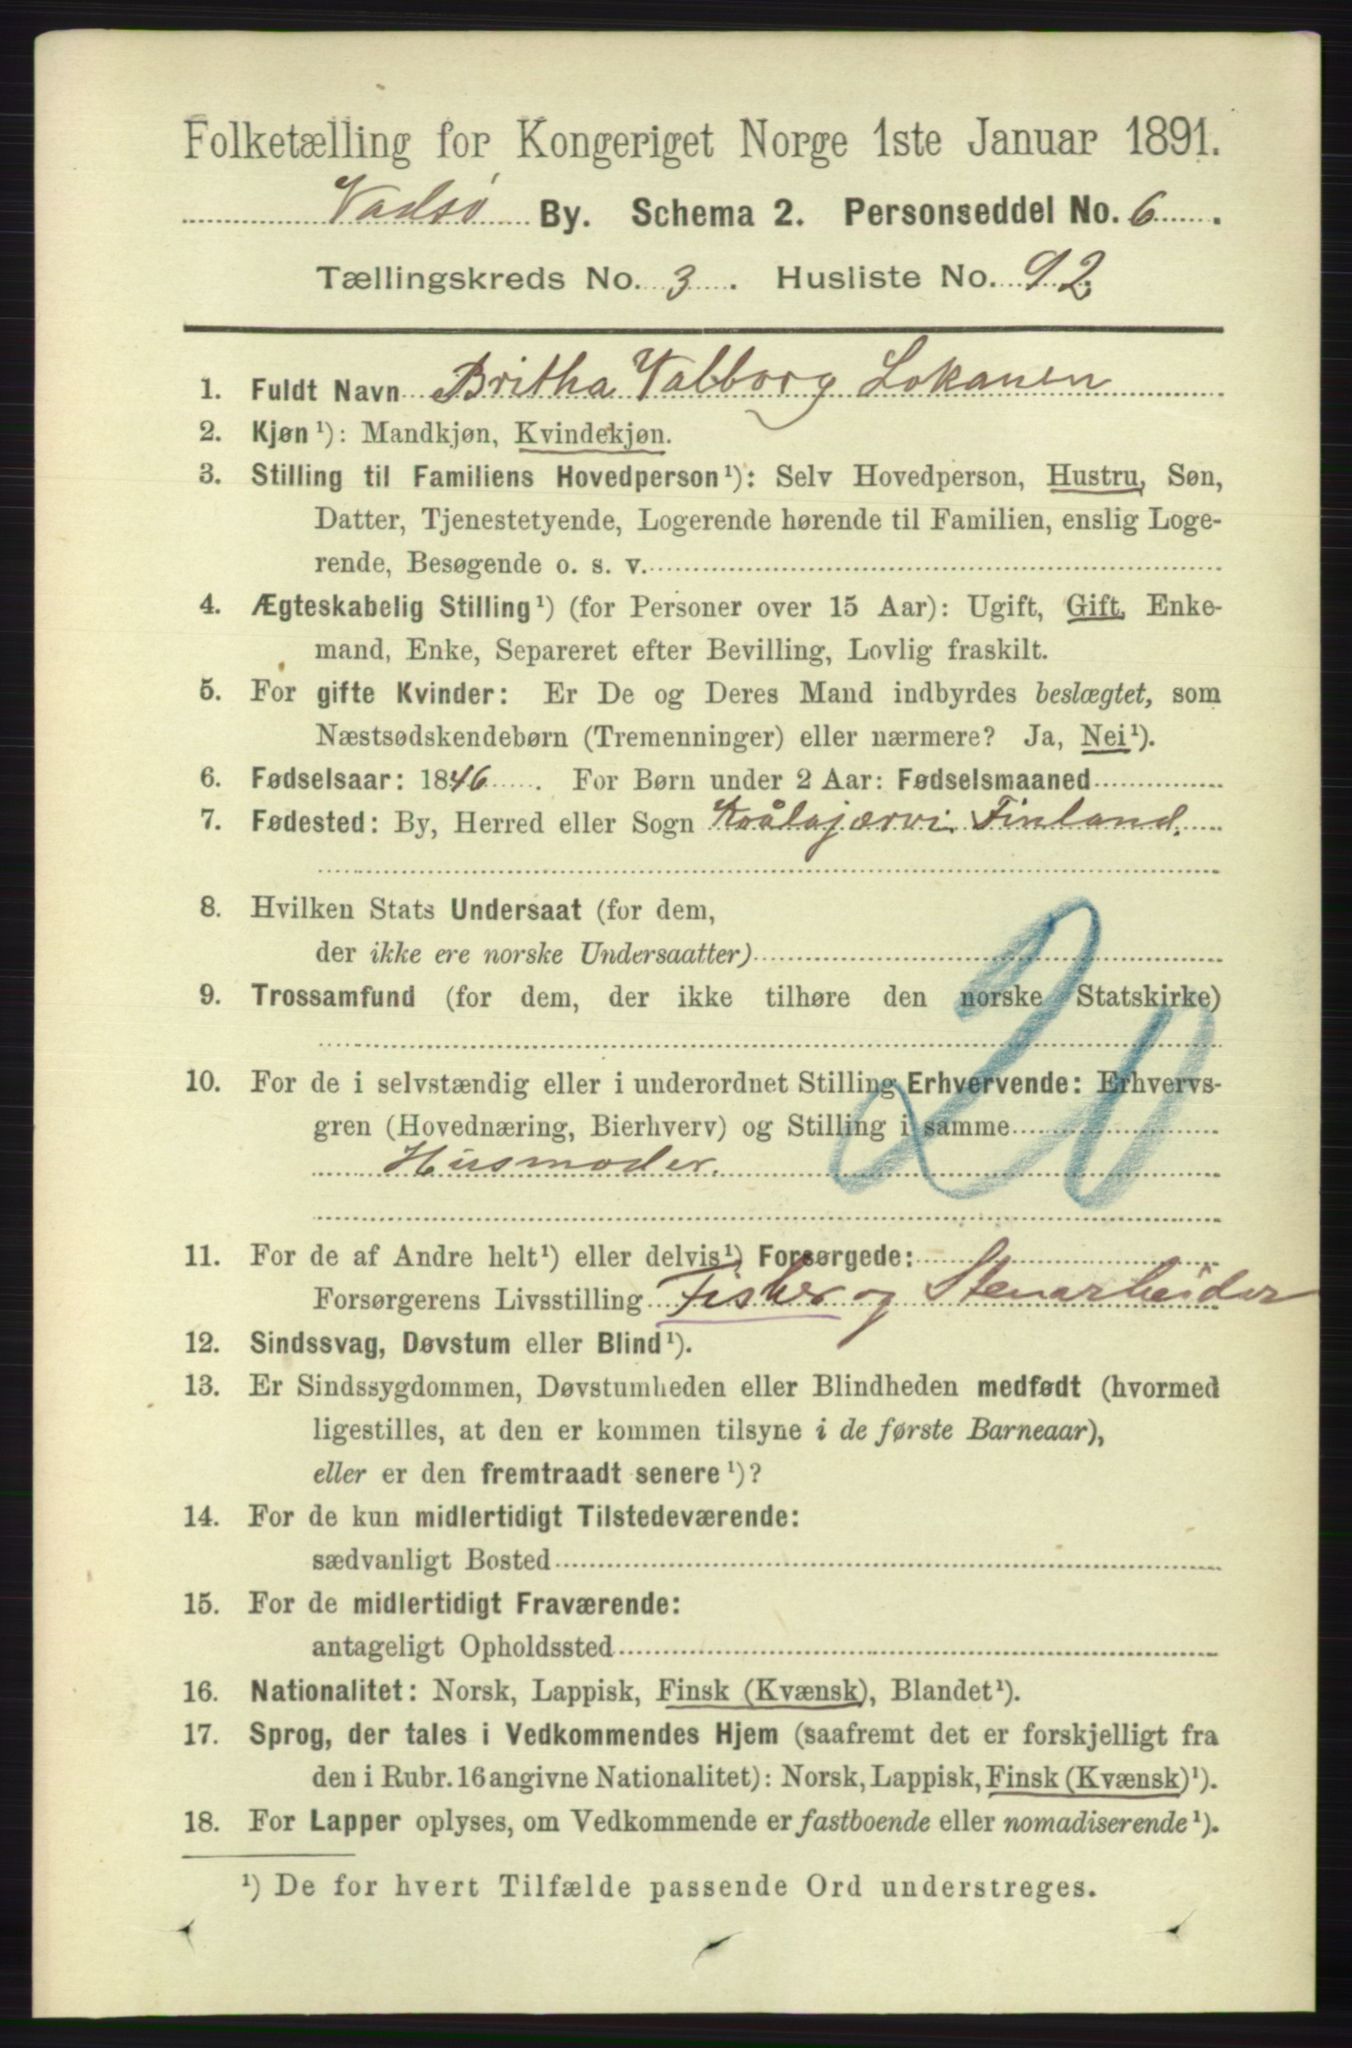 Folketælling for Kongeriget Norge 1ste Januar 1891.
Vadsø By. Schema 2. Personseddel No. 6.
Tællingskreds No. 3. Husliste No. 92.
1. Fuldt Navn Britha Valborg Lokanen
2. Kjøn¹): Mandkjøn, Kvindekjøn.
3. Stilling til Familiens Hovedperson¹): Selv Hovedperson, Hustru, Søn,
Datter, Tjenestetyende, Logerende hørende til Familien, enslig Loge-
rende, Besøgende o. s. v.
4. Ægteskabelig Stilling¹) (for Personer over 15 Aar): Ugift, Gift, Enke-
mand, Enke, Separeret efter Bevilling, Lovlig fraskilt.
5. For gifte Kvinder: Er De og Deres Mand indbyrdes beslægtet, som
Næstsødskendebørn (Tremenninger) eller nærmere? Ja, Nei¹).
6. Fødselsaar: 1846. For Børn under 2 Aar: Fødselsmaaned
7. Fødested: By, Herred eller Sogn Koålajærvi Finland.
8. Hvilken Stats Undersaat (for dem,
der ikke ere norske Undersaatter)
9. Trossamfund (for dem, der ikke tilhøre den norske Statskirke)
20
10. For de i selvstændig eller i underordnet Stilling Erhvervende: Erhvervs-
gren (Hovednæring, Bierhverv) og Stilling i samme
Husmoder.
11. For de af Andre helt¹) eller delvis¹) Forsørgede:
Forsørgerens Livsstilling Fisker og Stenarbeider
12. Sindssvag, Døvstum eller Blind¹).
13. Er Sindssygdommen, Døvstumheden eller Blindheden medfødt (hvormed
ligestilles, at den er kommen tilsyne i de første Barneaar),
eller er den fremtraadt senere¹)?
14. For de kun midlertidigt Tilstedeværende:
sædvanligt Bosted
15. For de midlertidigt Fraværende:
antageligt Opholdssted
16. Nationalitet: Norsk, Lappisk, Finsk (Kvænsk), Blandet¹).
17. Sprog, der tales i Vedkommendes Hjem (saafremt det er forskjelligt fra
den i Rubr. 16 angivne Nationalitet): Norsk, Lappisk, Finsk (Kvænsk)¹).
18. For Lapper oplyses, om Vedkommende er fastboende eller nomadiserende¹).
¹) De for hvert Tilfælde passende Ord understreges.